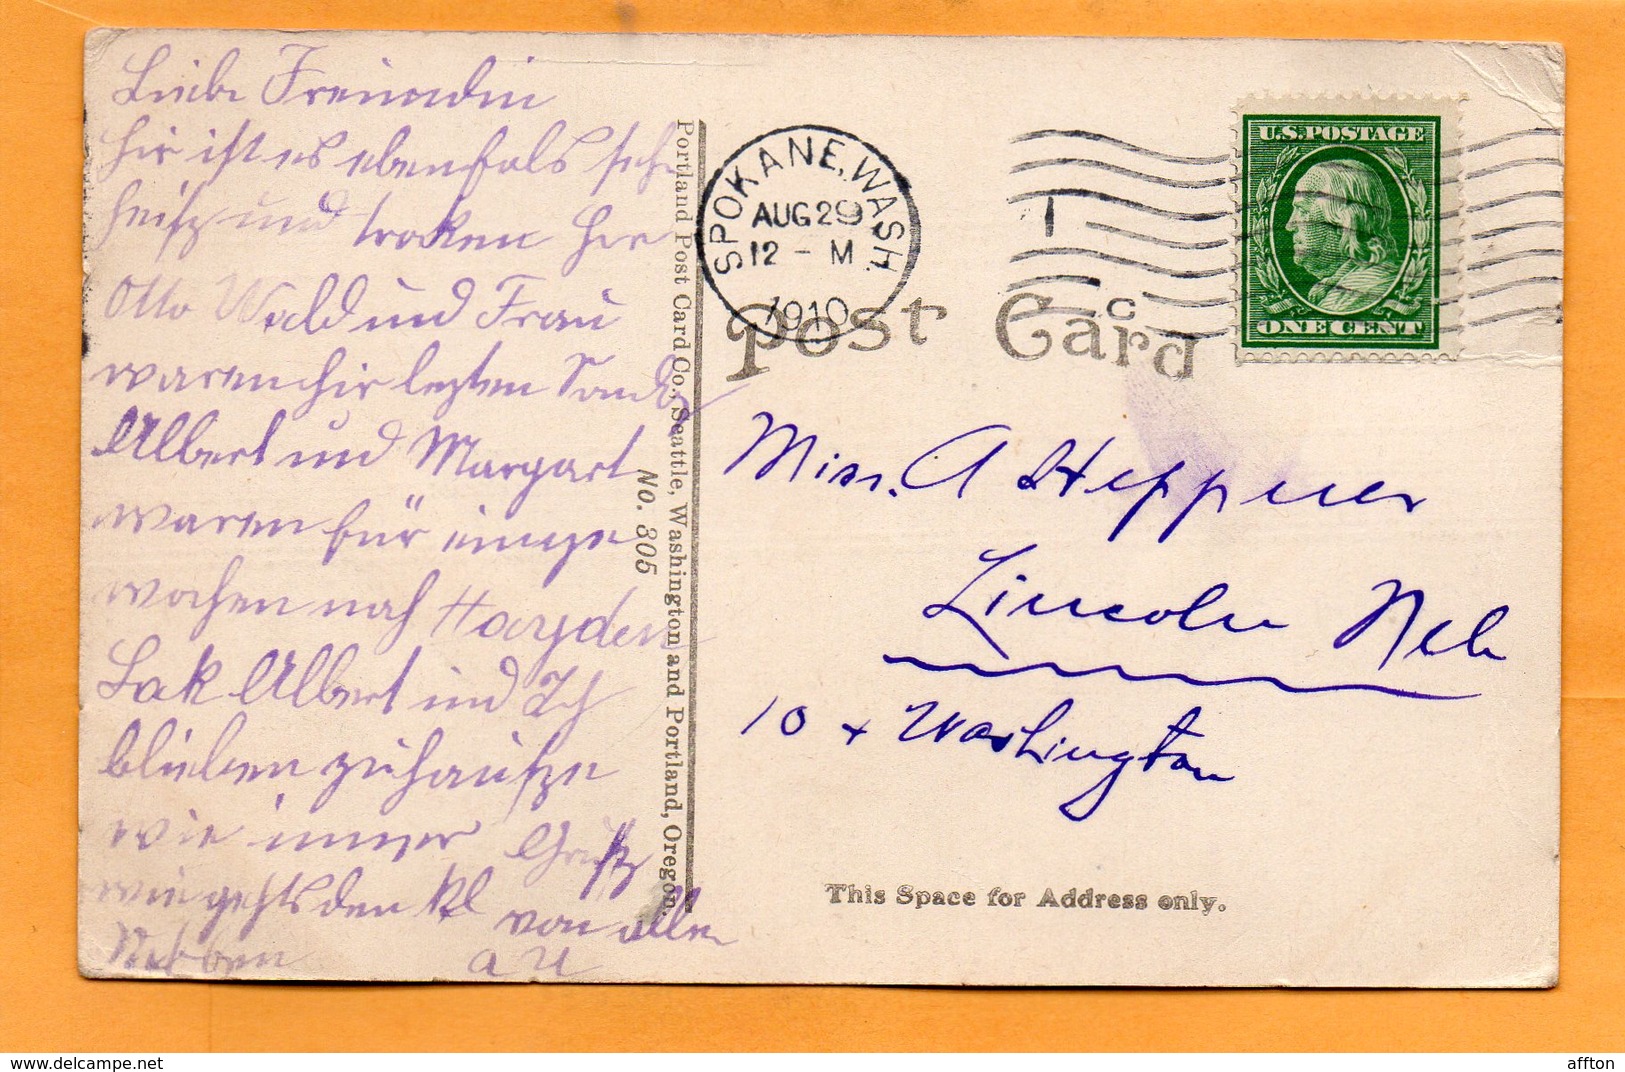 Liebe Freundin
hir ist es ebenfals sehr
heisz und troken Herr
Otto Wald und Frau
waren hir lezten
Albert und Margart
waren für einige
wochen nach Hayden
Lak Albert und Ich
blieben zuhausze
wie immer Grusz
wie gehts den kl
von allen
Portland Post Card Co., Seattle, Washington and Portland, Oregon.
No. 305
SPOKANE, WASH.
AUG 29
12 - M
1910
U.S. POSTAGE
ONE CENT
Post Card
Miss. A Heppner
Lincoln Neb
10 + Washington
This Space for Address only.
affton